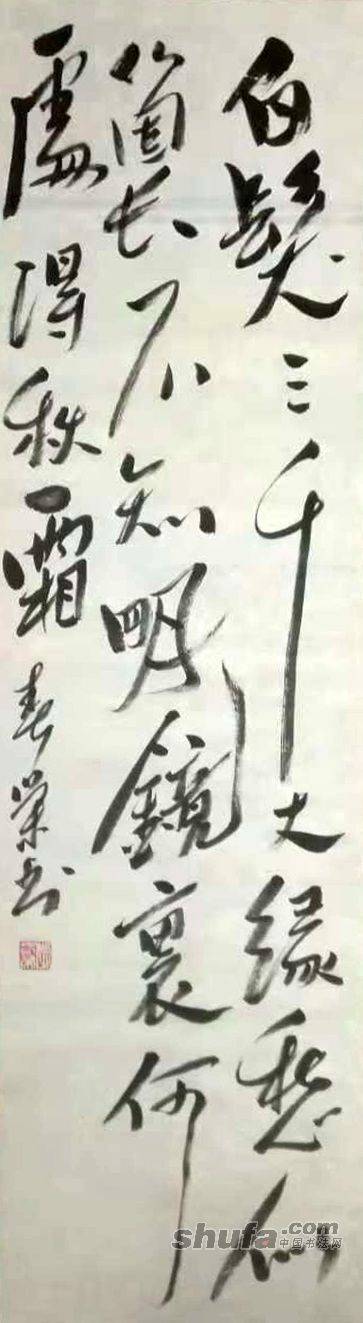 白髮三千丈缘愁似
箇长不知明鏡裏何
處得秋霜
春榮书
shufa.com
中国书法网